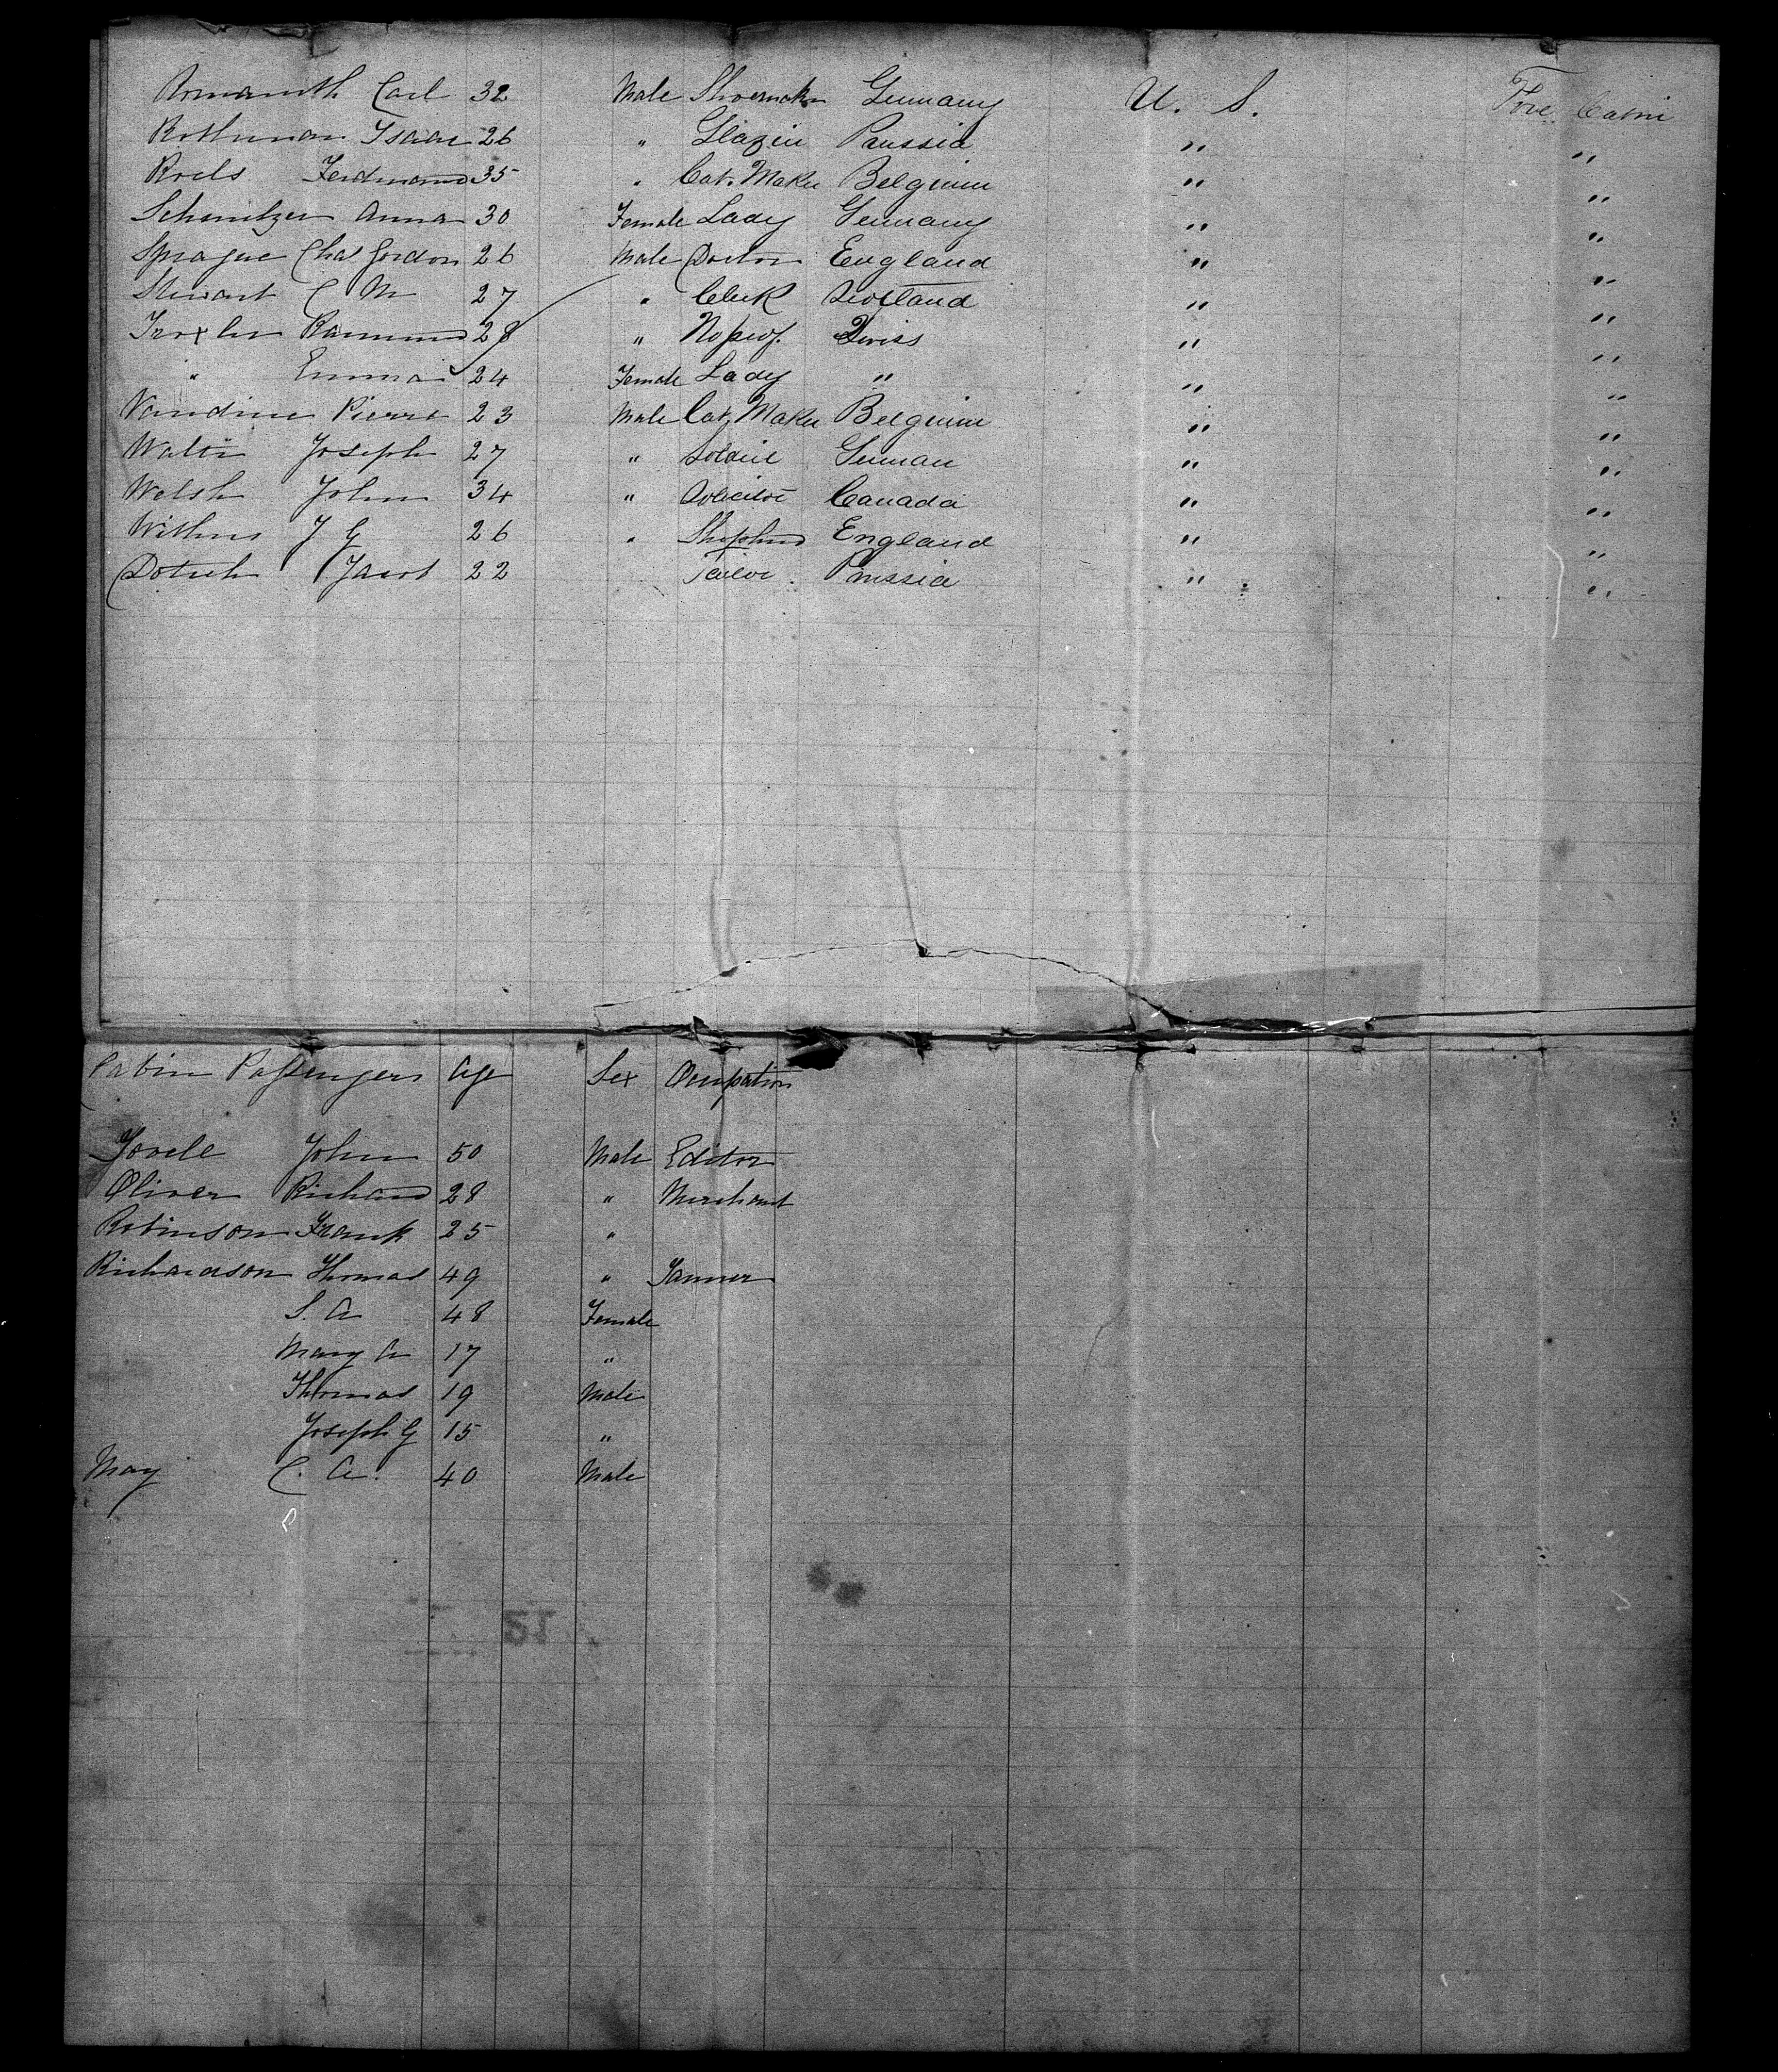 Carl 32 Male Shoemaker Germany U. S. Fore Cabin
Rothman Isaac 26 " Glazier Prussia " "
Roels Ferdinand 35 " Cab. Maker Belgium " "
Schnitzer Anna 30 Female Lady Germany " "
Sprague Chas Gordon 26 Male Doctor England " "
Stewart C M 27 " Clerk Scotland " "
Troxler Ramund 28 " No prof. Swiss " "
" Emma 24 Female Lady " " "
Vandine Pierre 23 Male Cab. Maker Belgium " "
Walter Joseph 27 " Soldier German " "
Welsh John 34 " Solicitor Canada " "
Withers J G 26 " Shepherd England " "
Jacob 22 Tailor Prussia " "
Cabin Passengers Age Sex Occupation
John 50 Male Editor
Oliver Richard 28 " Merchant
Robinson Frank 25 "
Richardson Thomas 49 " Tanner
S. A 48 Female
Mary A 17 "
Thomas 19 Male
Joseph G 15 "
May C. A. 40 Male